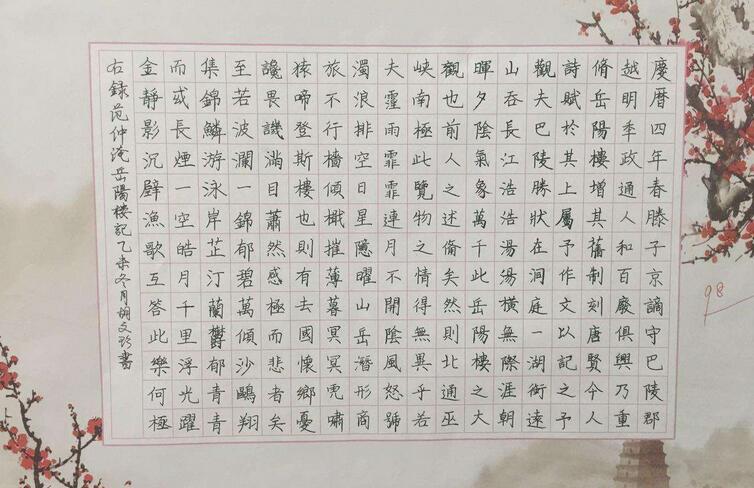 慶暦四年春滕子京謫守巴陵郡
越明秊政通人和百廢俱興乃重
脩岳陽樓增其舊制刻唐賢今人
詩賦於其上屬予作文以記之予
觀夫巴陵勝狀在洞庭一湖銜遠
山吞長江浩浩湯湯橫無際涯朝
暉夕陰氣象萬千此岳陽樓之大
觀也前人之述俻矣然則北通巫
峽南極此覽物之情得無異乎若
夫霪雨霏霏連月不開陰風怒號
濁浪排空日星隱曜山岳潛形商
旅不行檣傾檝摧薄暮冥冥虎嘯
猿啼登斯樓也則有去國懷鄉憂
讒畏譏滿目蕭然感極而悲者矣
至若波瀾一錦郁碧萬傾沙鷗翔
集錦鱗游泳岸芷汀蘭欝郁青青
而或長煙一空皓月千里浮光躍
金靜影沉壁漁歌互答此樂何極
右録范仲淹岳陽樓記乙未冬月胡文珍書
98